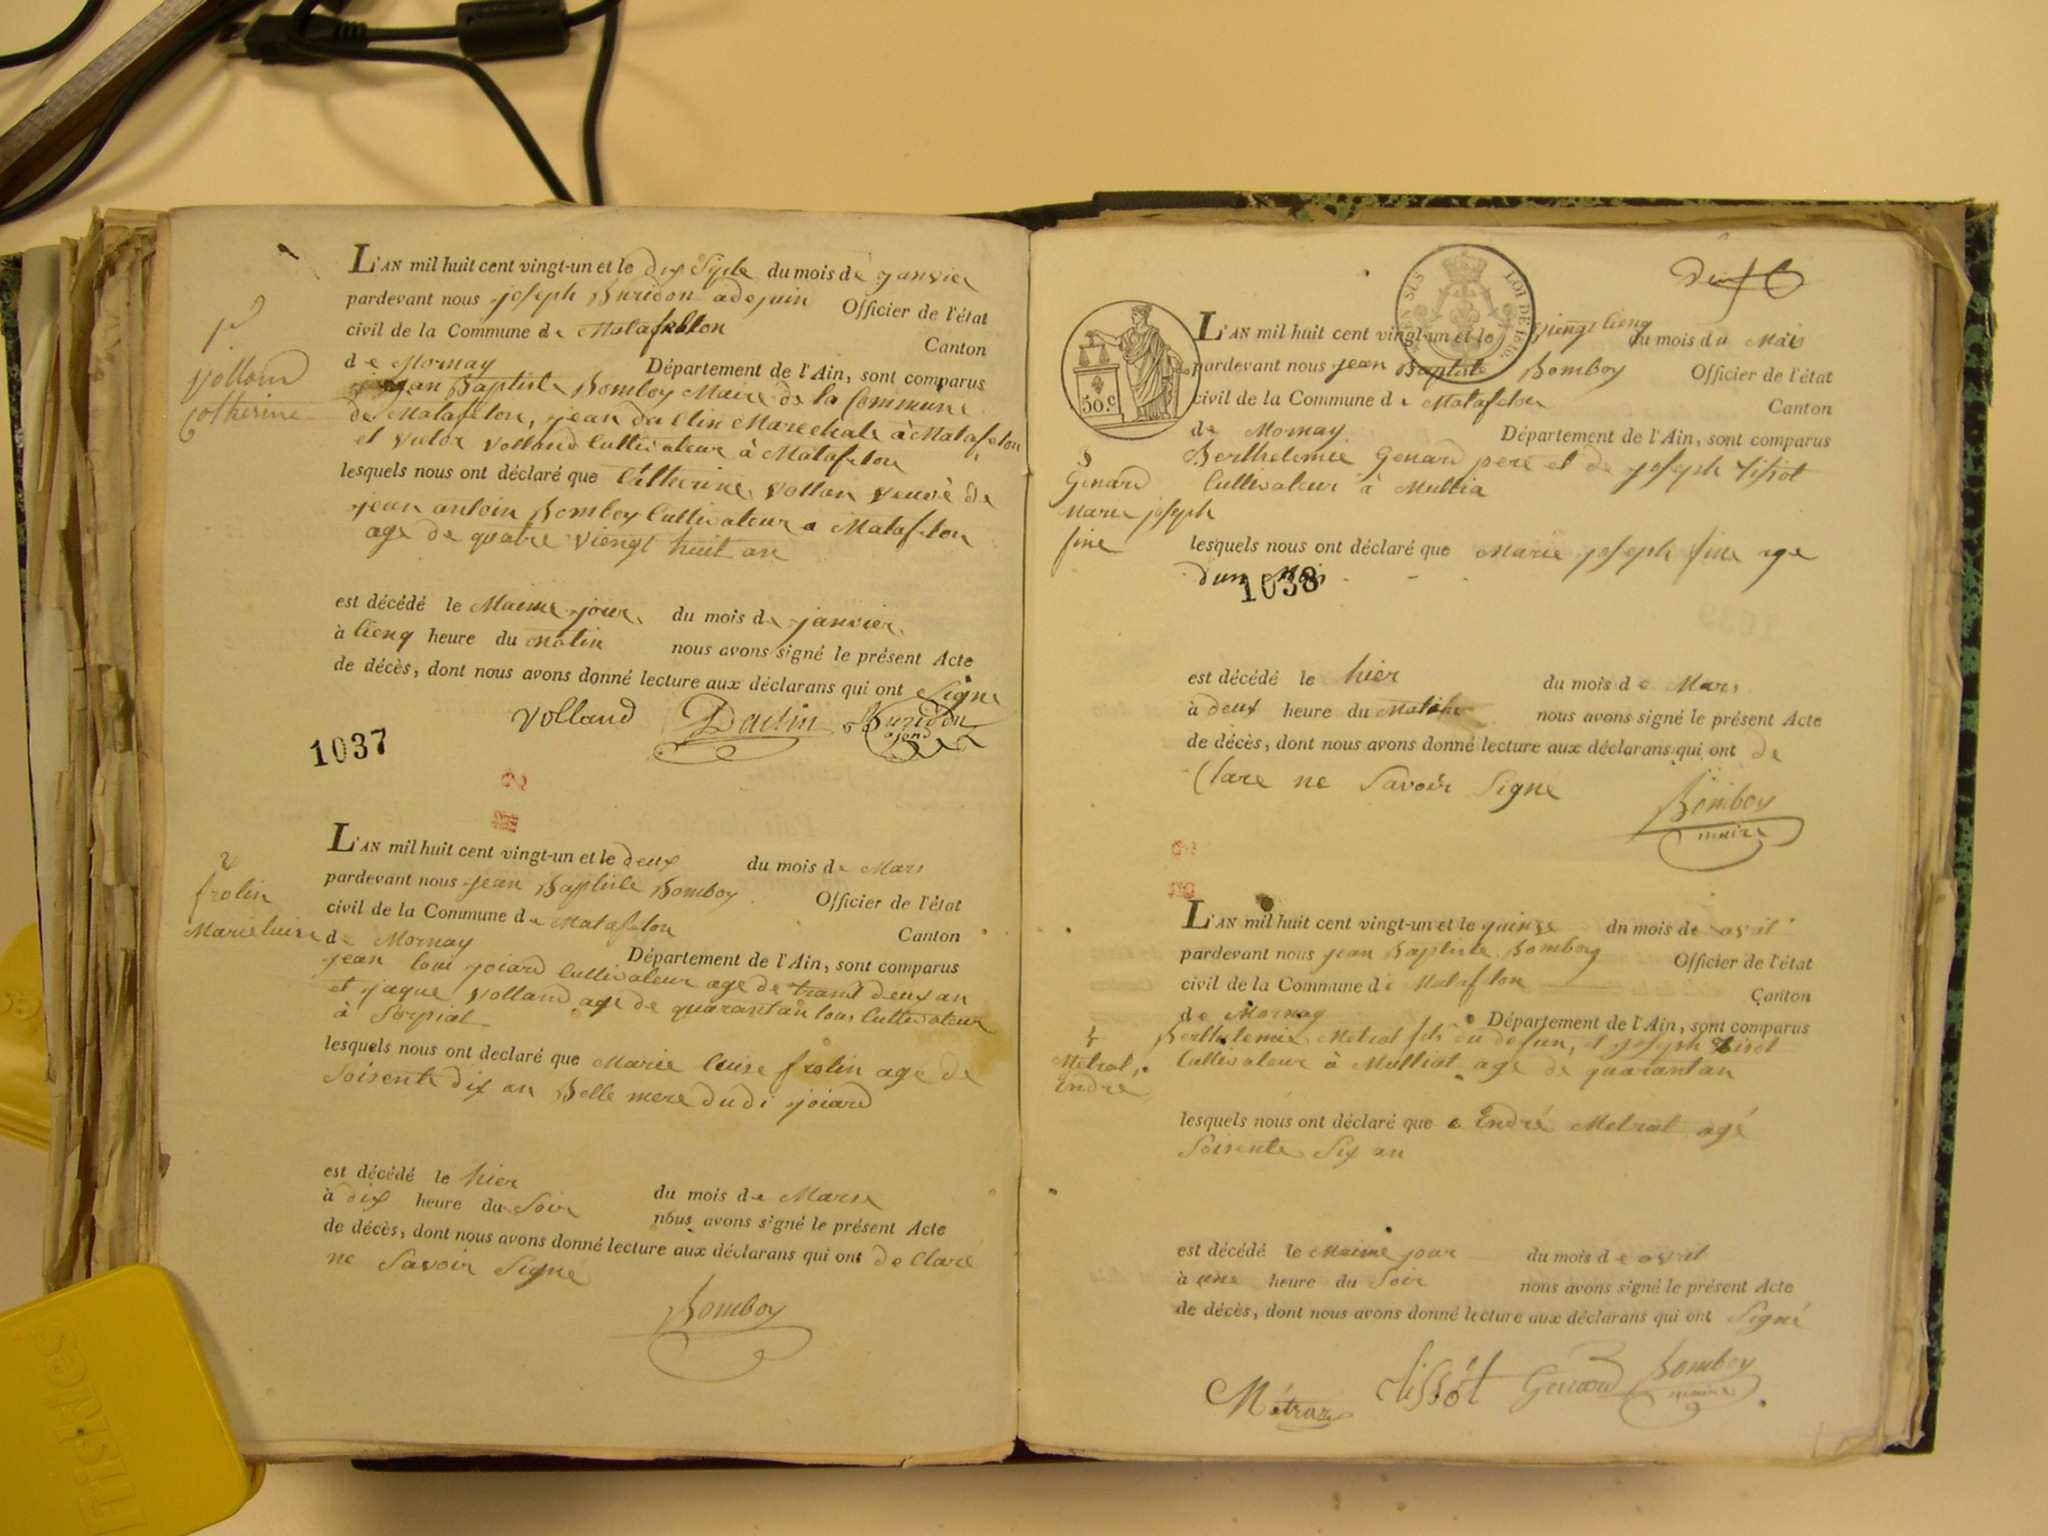 1r
Volland
Catherine
L'AN mil huit cent vingt-un et le dix du mois de janvier
pardevant nous joseph Buridon adejuin Officier de l'état
civil de la Commune de Matafellon Canton
de Mornay Département de l'Ain, sont comparus
jean Baptiste Bomboy Maire de la Commune
de Matafelon, jean Marechale à Matafelon
et Volland Cultivateur à Matafelon
lesquels nous ont déclaré que Catherine Vollan veuve de
jean antoin Bomboy Cultivateur a Matafelon
age de quatre viengt huit an
est décédé le Maime jour du mois de janvier
à cienq heure du Matin nous avons signé le présent Acte
de décès, dont nous avons donné lecture aux déclarans qui ont Signe
Volland Daclin Buridon
ajend
1037
2
frolin
Marie luise
L'AN mil huit cent vingt-un et le deux du mois de Mars
pardevant nous jean Baptiste Bomboy Officier de l'état
civil de la Commune de Matafelon Canton
de Mornay Département de l'Ain, sont comparus
jean loui joiard Cultivateur age de trant deux an
et jaque Volland age de quarantan tous Cultivateur
à
lesquels nous ont declaré que Marie luise frolin age de
Soisente dix an Belle mere dudi joiard
est décédé le hier du mois de Mars
à dix heure du Soir nous avons signé le présent Acte
de décès, dont nous avons donné lecture aux déclarans qui ont de Clare
ne Savoir Signe
Bomboy
LOI DE 1816
50.c
3
Genard
Marie joseph
fine
L'AN mil huit cent vingt-un et le viengt cienq du mois du Mars
pardevant nous jean Baptiste Bomboy Officier de l'état
civil de la Commune de Matafelon Canton
de Mornay Département de l'Ain, sont comparus
Berthelemie Genard pere et de joseph Tissot
Cultivateur à Mullia
lesquels nous ont déclaré que Marie joseph fine age
d'un Mois
1038
est décédé le hier du mois de Mars
à deux heure du Matin nous avons signé le présent Acte
de décès, dont nous avons donné lecture aux déclarans qui ont de
Clare ne Savoir Signe
Bomboy
maire
4
Metral
Endre
L'AN mil huit cent vingt-un et le quinze dn mois de avril
pardevant nous jean Baptiste Bomboy Officier de l'état
civil de la Commune de Matafelon Canton
de Mornay Département de l'Ain, sont comparus
Berthelemie Metral fils du defun, et joseph Tisot
Cultivateur à Mulliat age de quarantan
lesquels nous ont déclaré que Endré Metral agé
Soisente Six an
est décédé le Maime jour du mois de avril
à une heure du Soir nous avons signé le présent Acte
de décès, dont nous avons donné lecture aux déclarans qui ont Signé
Métraz Tissot Genard Bomboy
maire